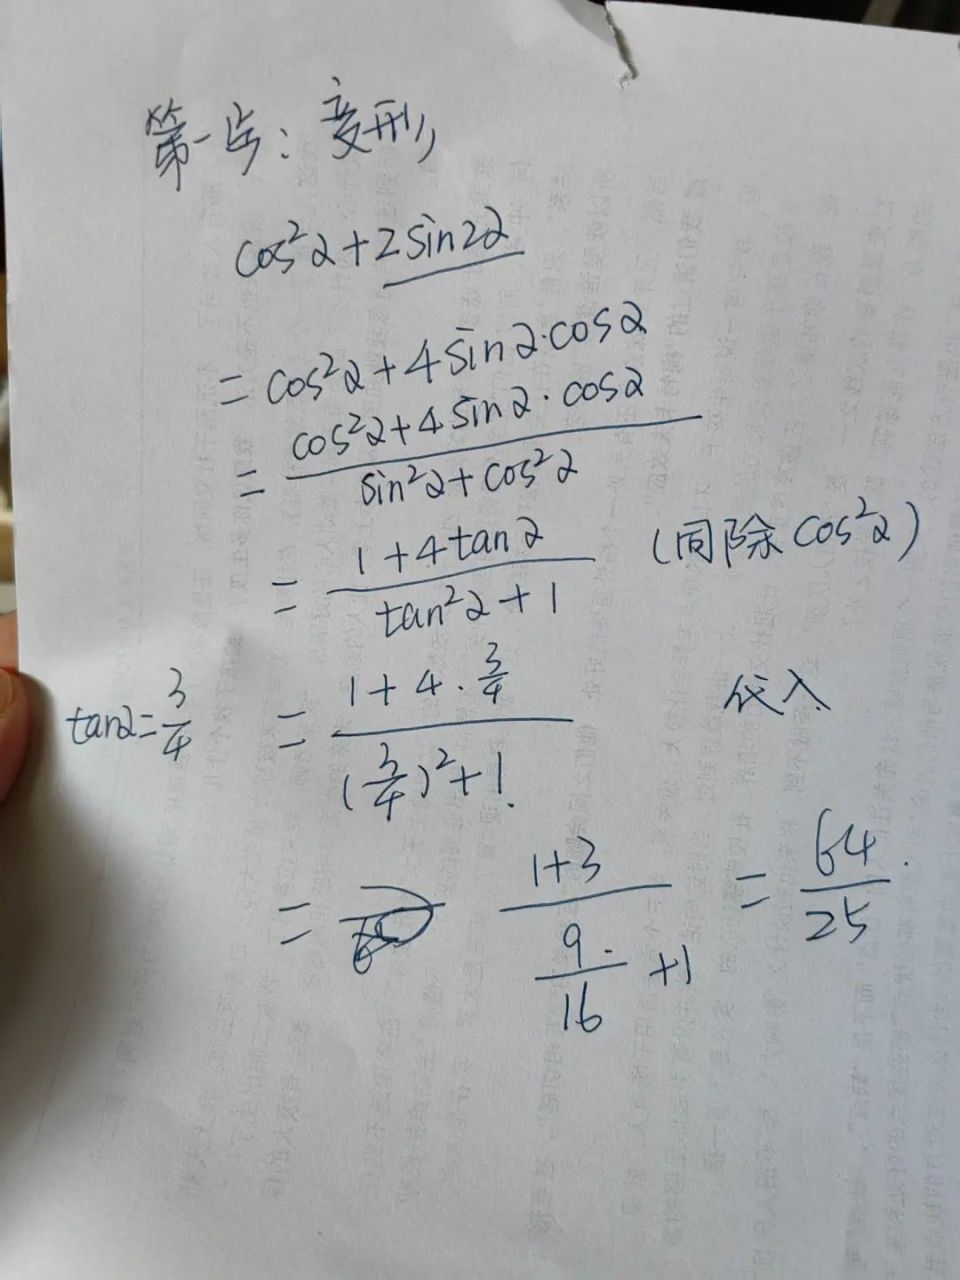 第一步：变形
cos²α+2sin2α
= cos²α+4sinα·cosα
= (cos²α+4sinα·cosα)/(sin²α+cos²α)
= (1+4tanα)/(tan²α+1) (同除cos²α)
tanα=3/4 = (1+4·3/4)/((3/4)²+1) 代入
= (1+3)/(9/16+1) = 64/25